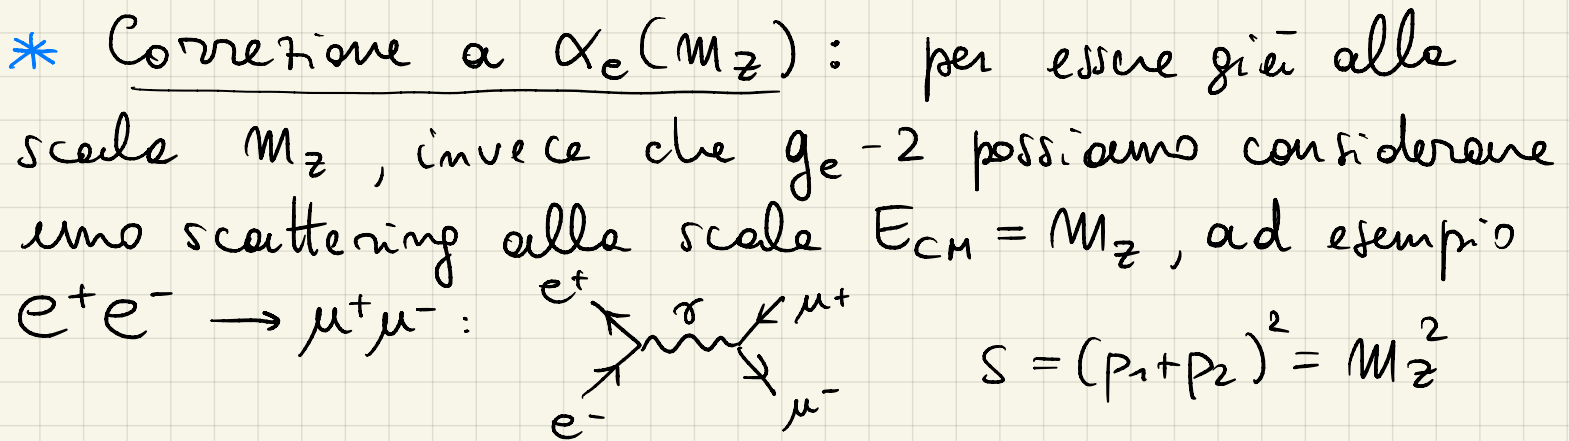 * Correzione a αe(mZ): per essere già alla
scala mZ, invece che ge-2 possiamo considerare
uno scattering alla scala ECM = MZ, ad esempio
e+e- → μ+μ- : e+ e- γ μ+ μ- S = (p1+p2)² = MZ²